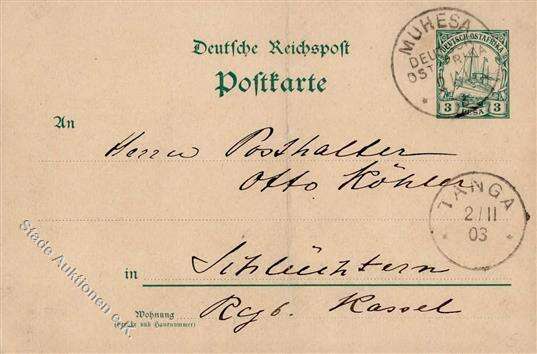 Deutsche Reichspost
Postkarte
MUHESA
DEUTSCH-OSTAFRIKA
3 PESA 3
An
Herrn Posthalter
Otto Köhler
TANGA
2/11
03
in Schlüchtern
Wohnung
(Straße und Hausnummer)
Rgb. Kassel
Stade Auktionen e.K.